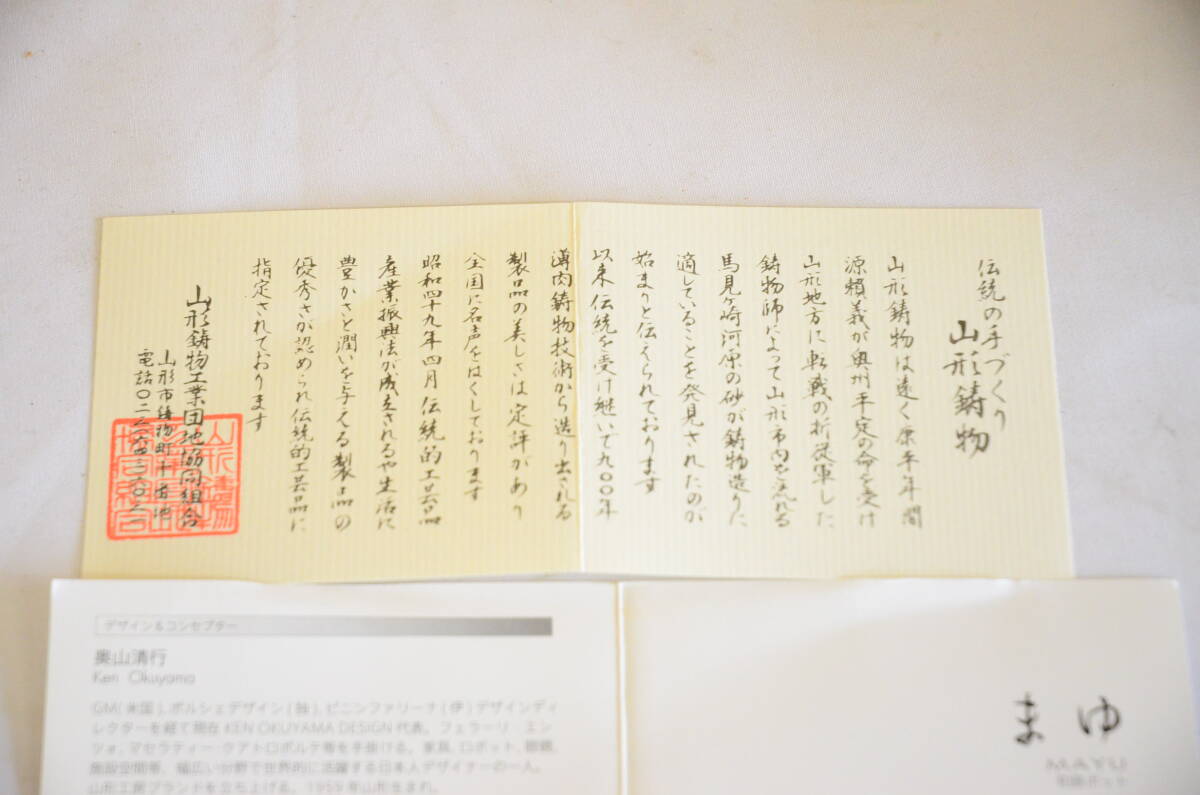 伝統の手づくり
山形鋳物
山形鋳物は遠く源平年間
源頼義が奥州平定の命を受け
山形地方に転戦の折従軍した
鋳物師によって山形市内を流れる
馬見ヶ崎河原の砂が鋳物造りに
適していることを発見されたのが
始まりと伝えられております
以来伝統を受け継いで九〇〇年
薄肉鋳物技術から造り出される
製品の美しさは定評があり
全国に名声をはくしております
昭和四十九年四月伝統的工芸品
産業振興法が成立されるや生活に
豊かさと潤いを与える製品の
優秀さが認められ伝統的工芸品に
指定されております
山形鋳物工業団地協同組合
山形市鋳物町十番地
電話
デザイン&コンセプター
奥山清行
Ken Okuyama
GM(米国)、ポルシェデザイン(独)、ピニンファリーナ(伊)デザインディ
レクターを経て現在 KEN OKUYAMA DESIGN 代表。フェラーリ・エン
ツォ、マセラティー・クアトロポルテ等を手掛ける。家具、ロボット、眼鏡、
施設空間等、幅広い分野で世界的に活躍する日本人デザイナーの一人。
山形工房ブランドを立ち上げる。1959年山形生まれ。
まゆ
MAYU